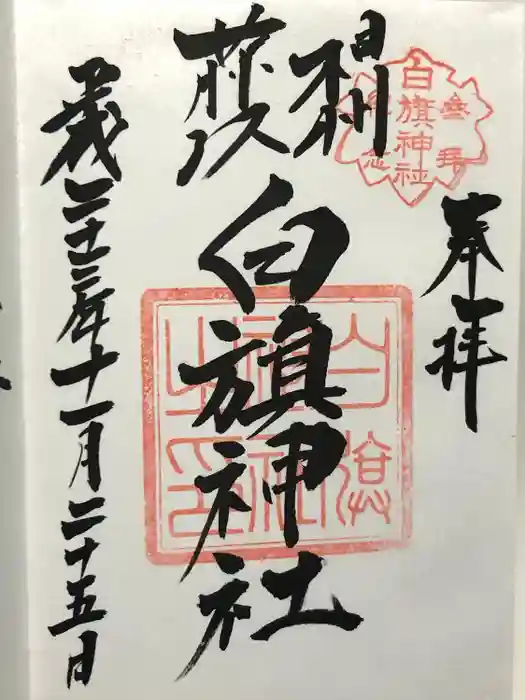 奉拝
参拝
白旗神社
記念
相州
藤沢
白旗神社
白旗
神社
之印
平成二十三年十一月二十五日